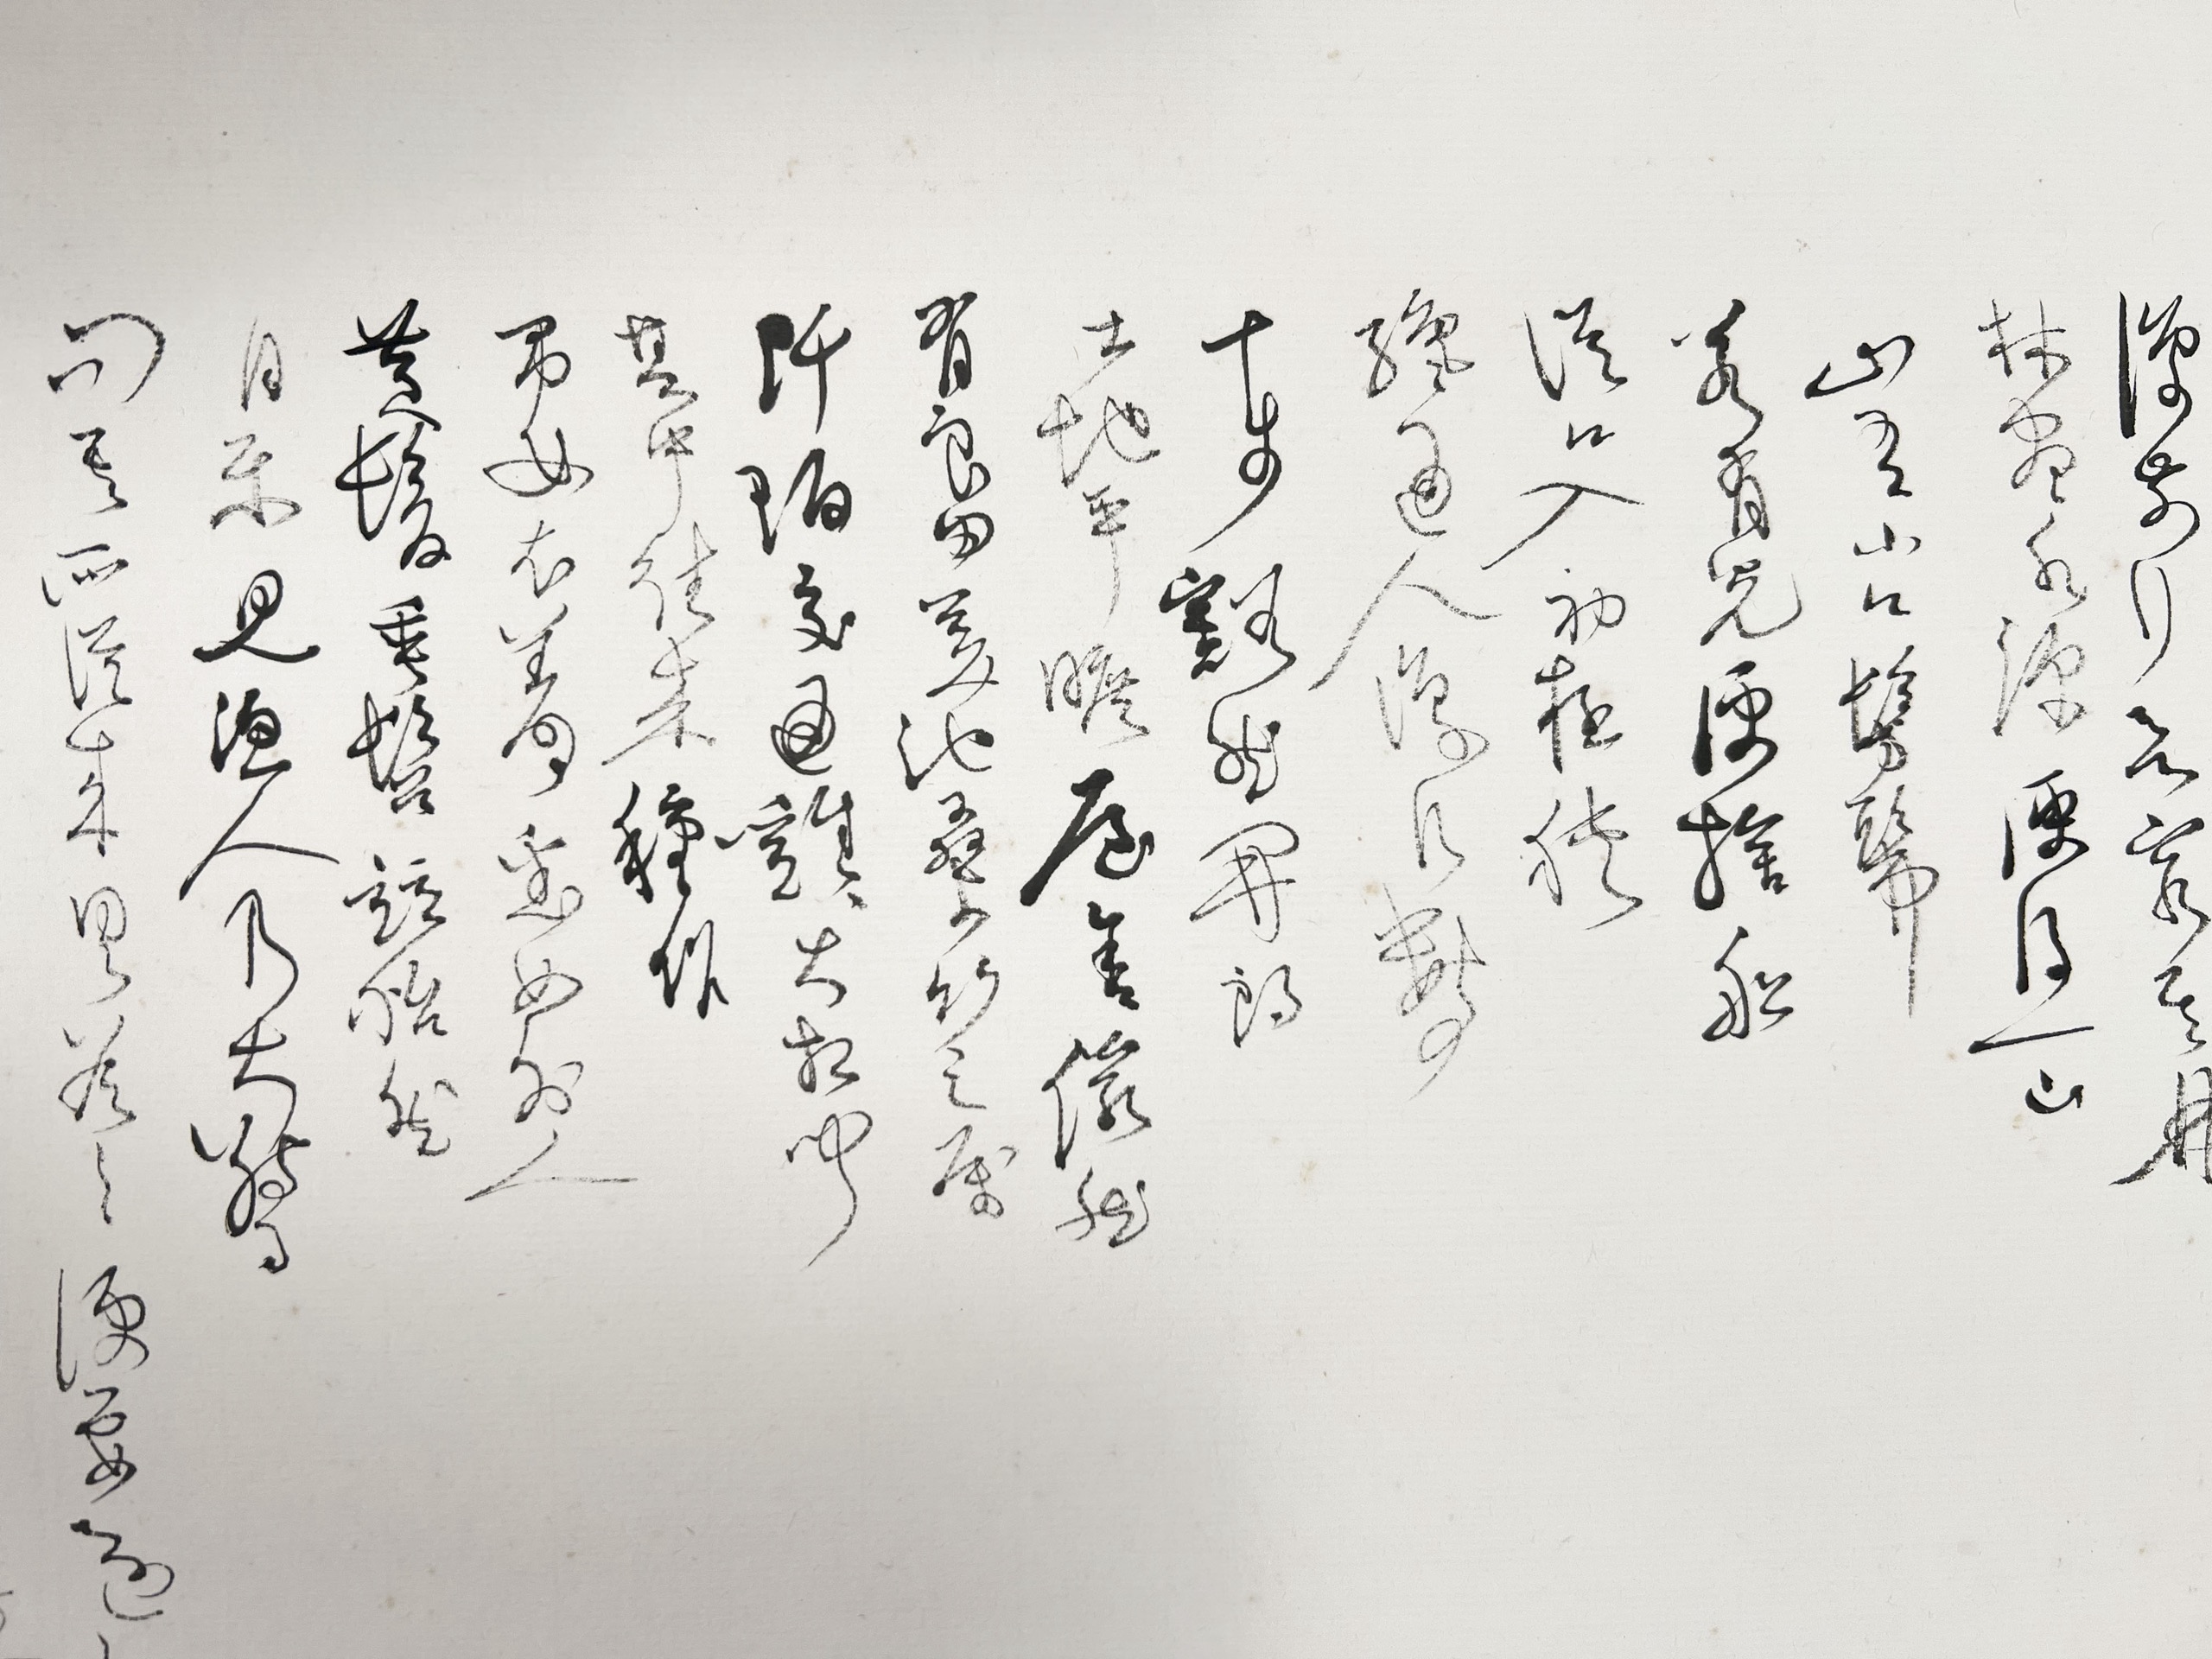 復前行欲窮其林
林盡水源便得一山
山有小口髣髴
若有光便捨船
從口入初極狹
纔通人復行數
十步豁然開朗
土地平曠屋舍儼然
有良田美池桑竹之屬
阡陌交通雞犬相聞
其中往來種作
男女衣著悉如外人
黃髮垂髫並怡然
自樂見漁人乃大驚
問其所從來具答之便要還